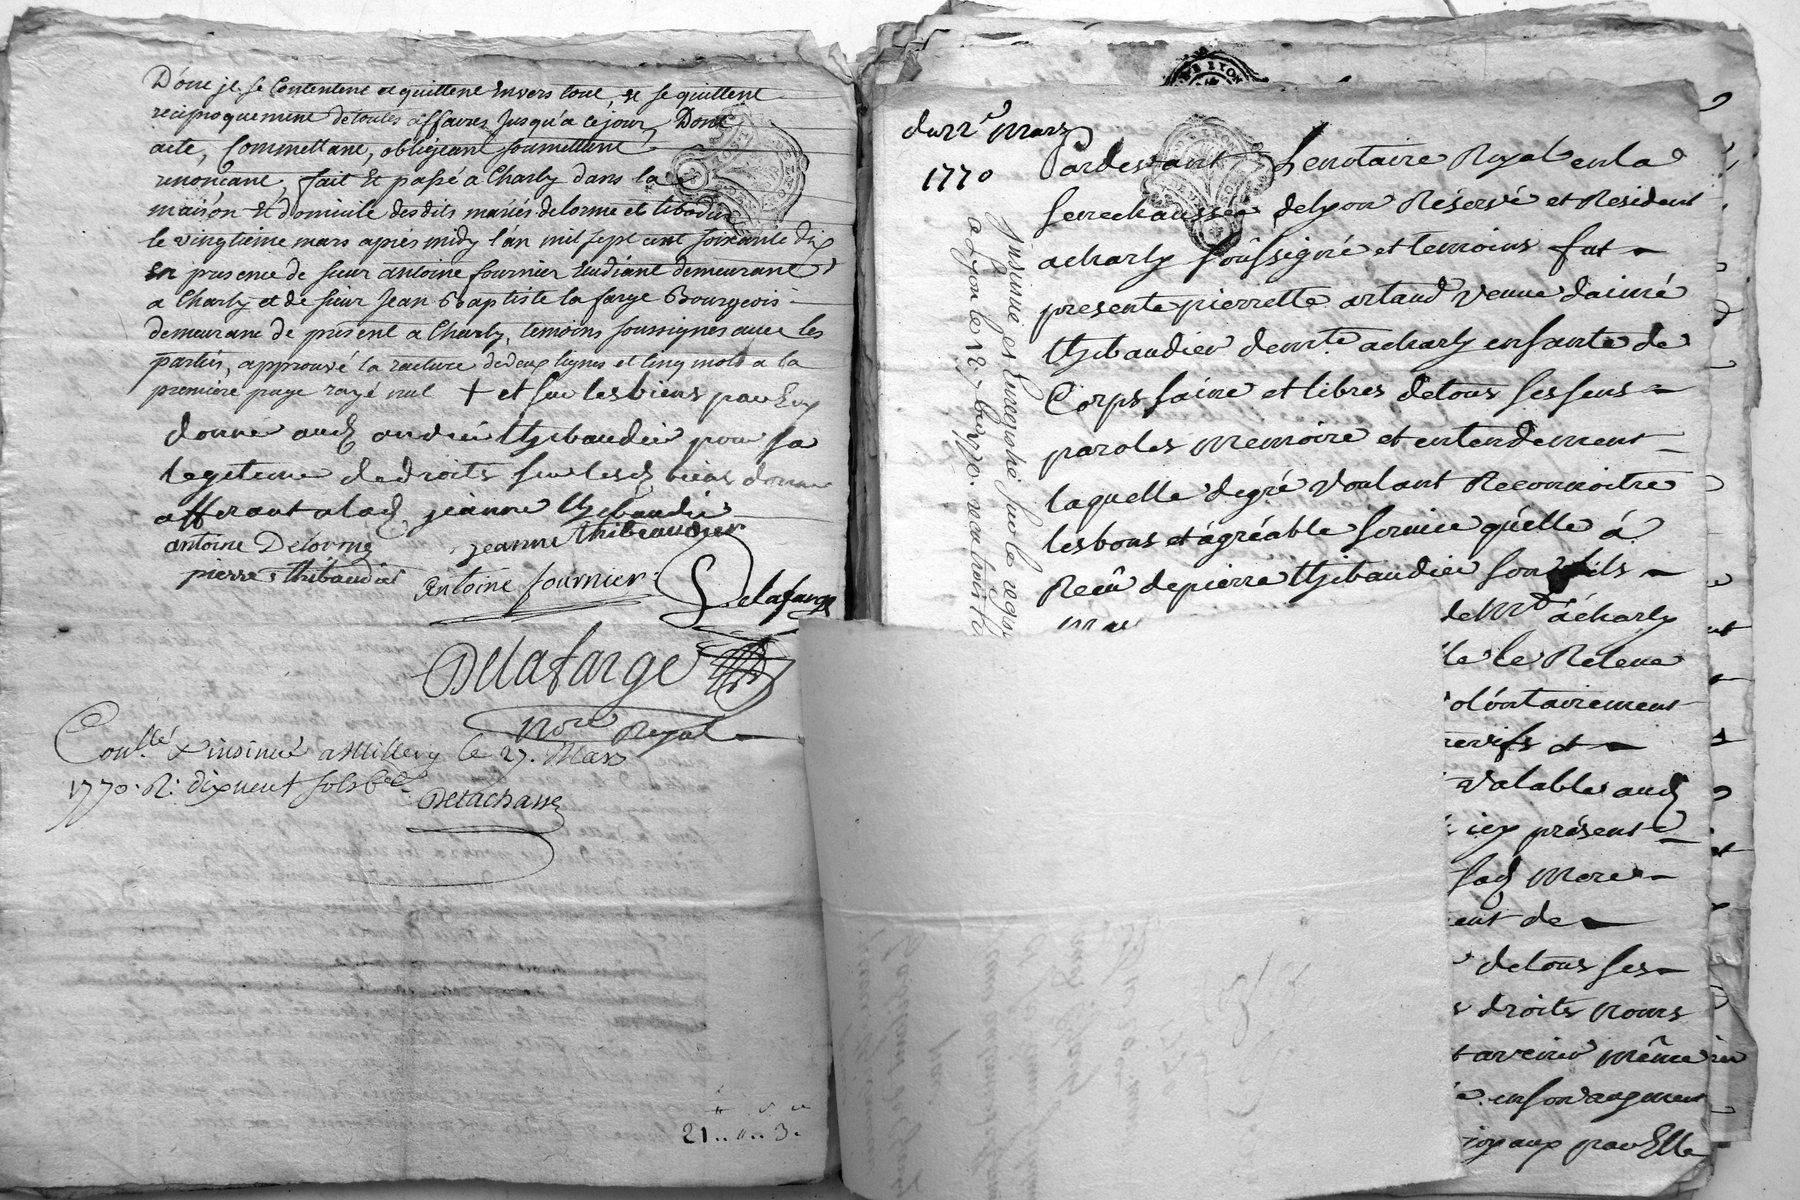 Donc ils se Contentent et quittent Envers tout, et se quittent
reciproquement de toutes affaires Jusqu'a ce jour, Dont
acte, Commettant, obligeant soumettent
renonçant, fait et passé a Charly dans la
maison et domicile desdits mariés delorme et tibodier
le vingtieme mars apres midy l'an mil sept cent soixante dix
En presence de sieur antoine fournier Etudiant demeurant
a Charly et de sieur Jean Baptiste la farge Bourgeois
demeurant de present a Charly, temoins soussignes avec les
parties, approuvé la rature de deux lignes et cinq mots a la
premiere page rayé nul + et sur les biens par Eux
donné aud andré thibaudier pour sa
legitime de droits sur lesd biens donné
afferant a lad jeanne thibaudier
antoine Delorme jeanne thibeaudier
pierre thibaudier Antoine fournier Delafarge
Delafarge
Nore Royal
Conllé & insinué a Millery le 27. Mars
1770. R. dix neuf sols
Delachasse
21.. 11.. 3.
DE LYON
du 22e Mars
1770
Pardevant Le notaire Royal en la
senechaussée de Lyon Réservé et Resident
a charly soussigné et temoins fut
presente pierrette artaud veuve d'aimé
thibaudier demte a charly enfante de
Corps saine et libres de tous ses sens
paroles memoire et entendement
laquelle de gré voulant Reconnoitre
les bons et agréable service qu'elle á
Reçû de pierre thibaudier son fils
de Md á charly
le le Releve
olontairement
valable aud
icy présent
sad Mere
ent de
de tous ses
droits noms
avenir même
en son augment
joyaux par Elle
Insinué et Enregistré sur le regst
a Lyon le